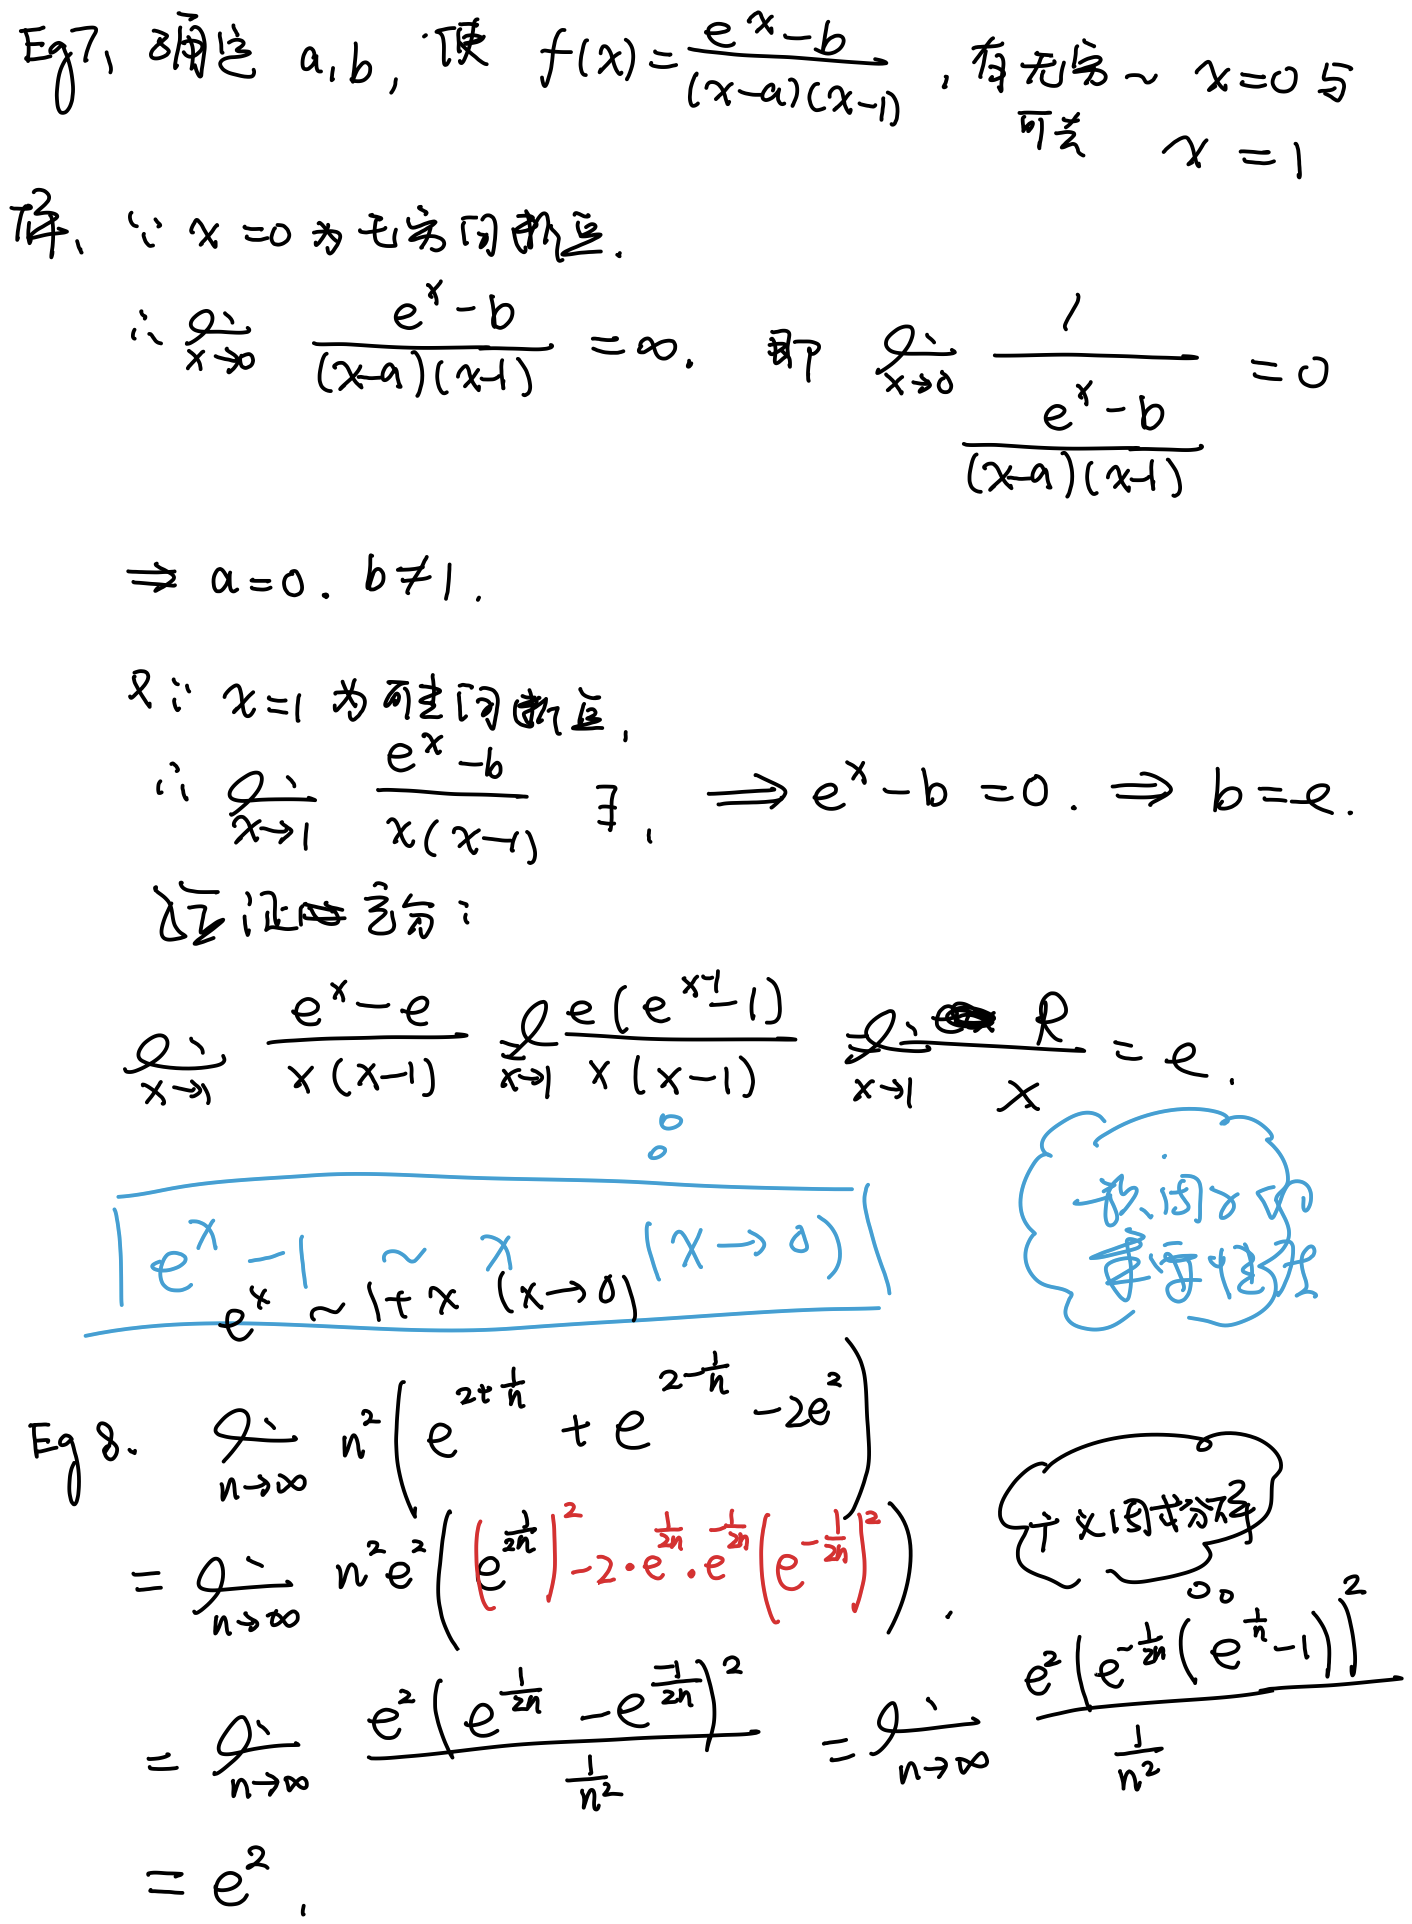 Eg7, 确定 a,b, 使 f(x)=\frac{e^x-b}{(x-a)(x-1)}, 有无穷~ x=0 与
可去 x=1
解、∵ x=0 为无穷间断点.
∴ lim_{x→0} \frac{e^x-b}{(x-a)(x-1)} =∞. 即 lim_{x→0} \frac{1}{\frac{e^x-b}{(x-a)(x-1)}} =0
⇒ a=0. b≠1.
又∵ x=1 为可去间断点,
∴ lim_{x→1} \frac{e^x-b}{x(x-1)} ∃, ⟹ e^x-b=0. ⟹ b=e.
验证 充分:
lim_{x→1} \frac{e^x-e}{x(x-1)} = lim_{x→1} \frac{e(e^{x-1}-1)}{x(x-1)} = lim_{x→1} \frac{e}{x} = e.
e^x-1 ~ x (x→0)
e^x ~ 1+x (x→0)
重要性质
Eg 8. lim_{n→∞} n^2(e^{2+\frac{1}{n}}+e^{2-\frac{1}{n}}-2e^2)
= lim_{n→∞} n^2e^2((e^{\frac{1}{2n}})^2-2·e^{\frac{1}{2n}}·e^{-\frac{1}{2n}}(e^{-\frac{1}{2n}})^2).
广义因式分解
= lim_{n→∞} \frac{e^2(e^{\frac{1}{2n}}-e^{\frac{-1}{2n}})^2}{\frac{1}{n^2}} = lim_{n→∞} \frac{e^2(e^{-\frac{1}{2n}}(e^{\frac{1}{n}}-1))^2}{\frac{1}{n^2}}
= e^2.